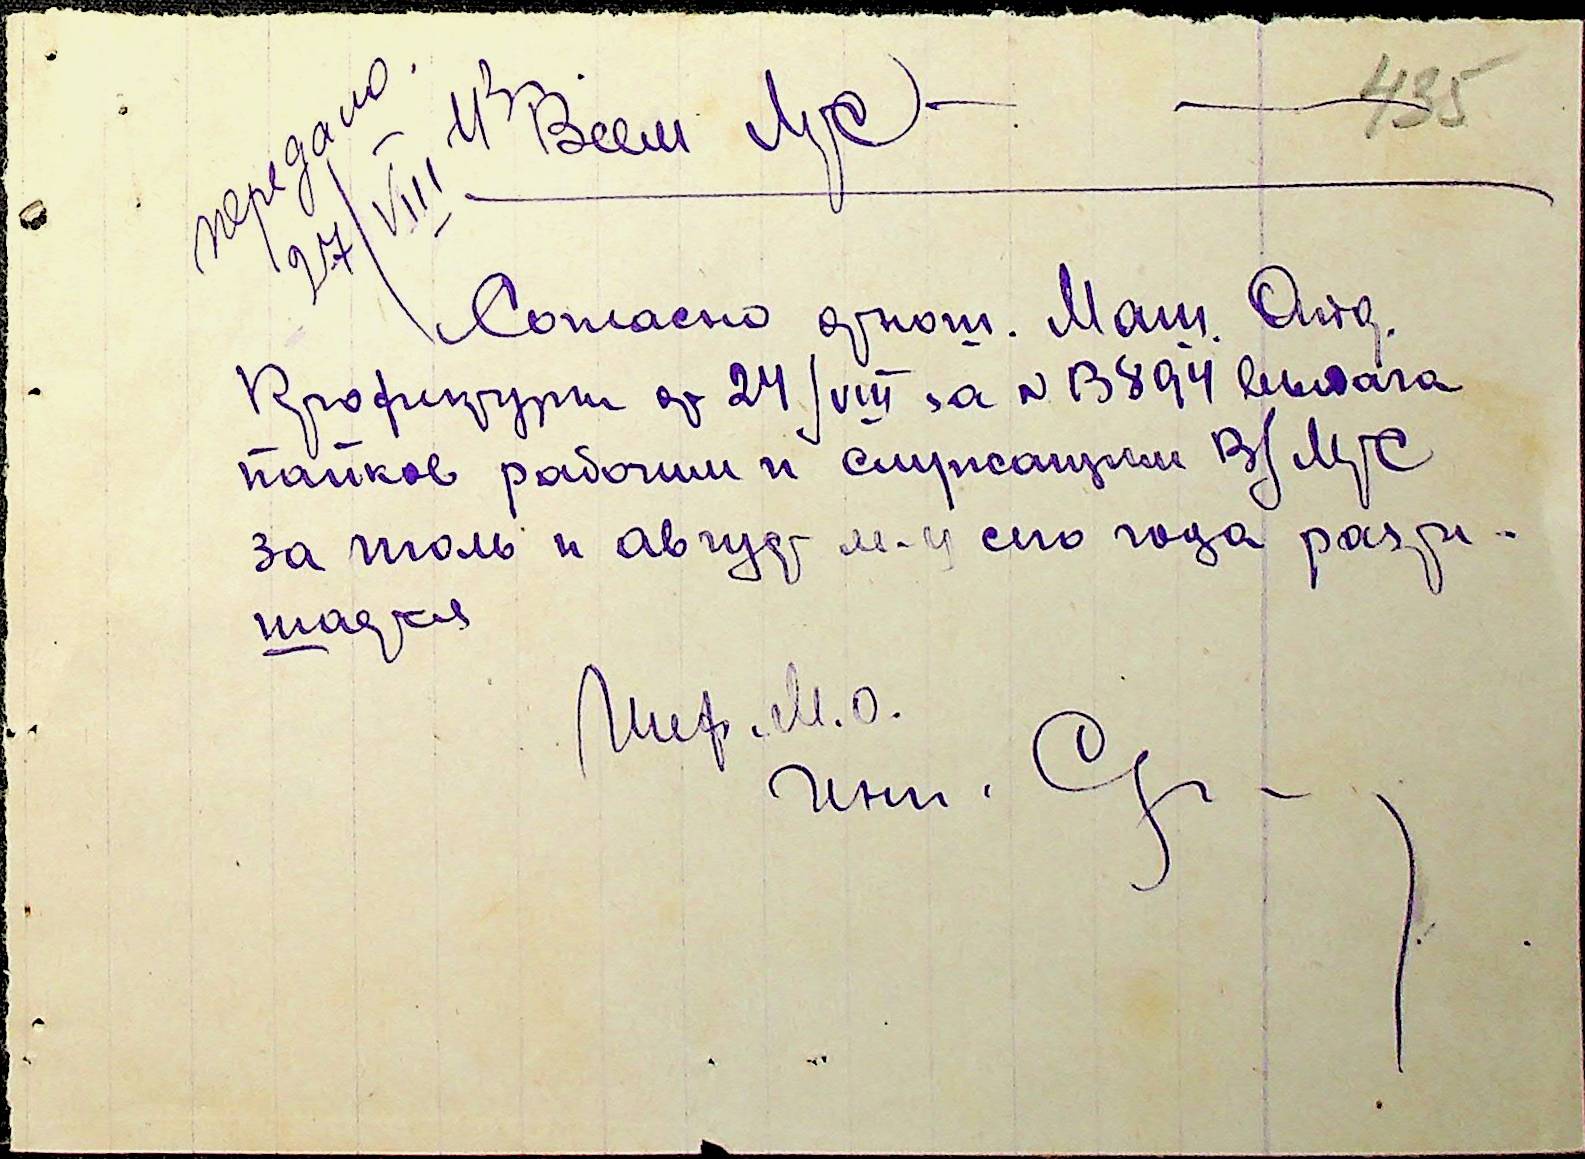 435
передано.
27/VIII
Всем МТС
Согласно отнош. Маш. Отд.
Крофинтурги от 24/VIII за № В894 выдача
пайков рабочим и служащим В/МТС
за июль и август м-ц сего года разре-
шается
Шеф. М.О.
Инж.